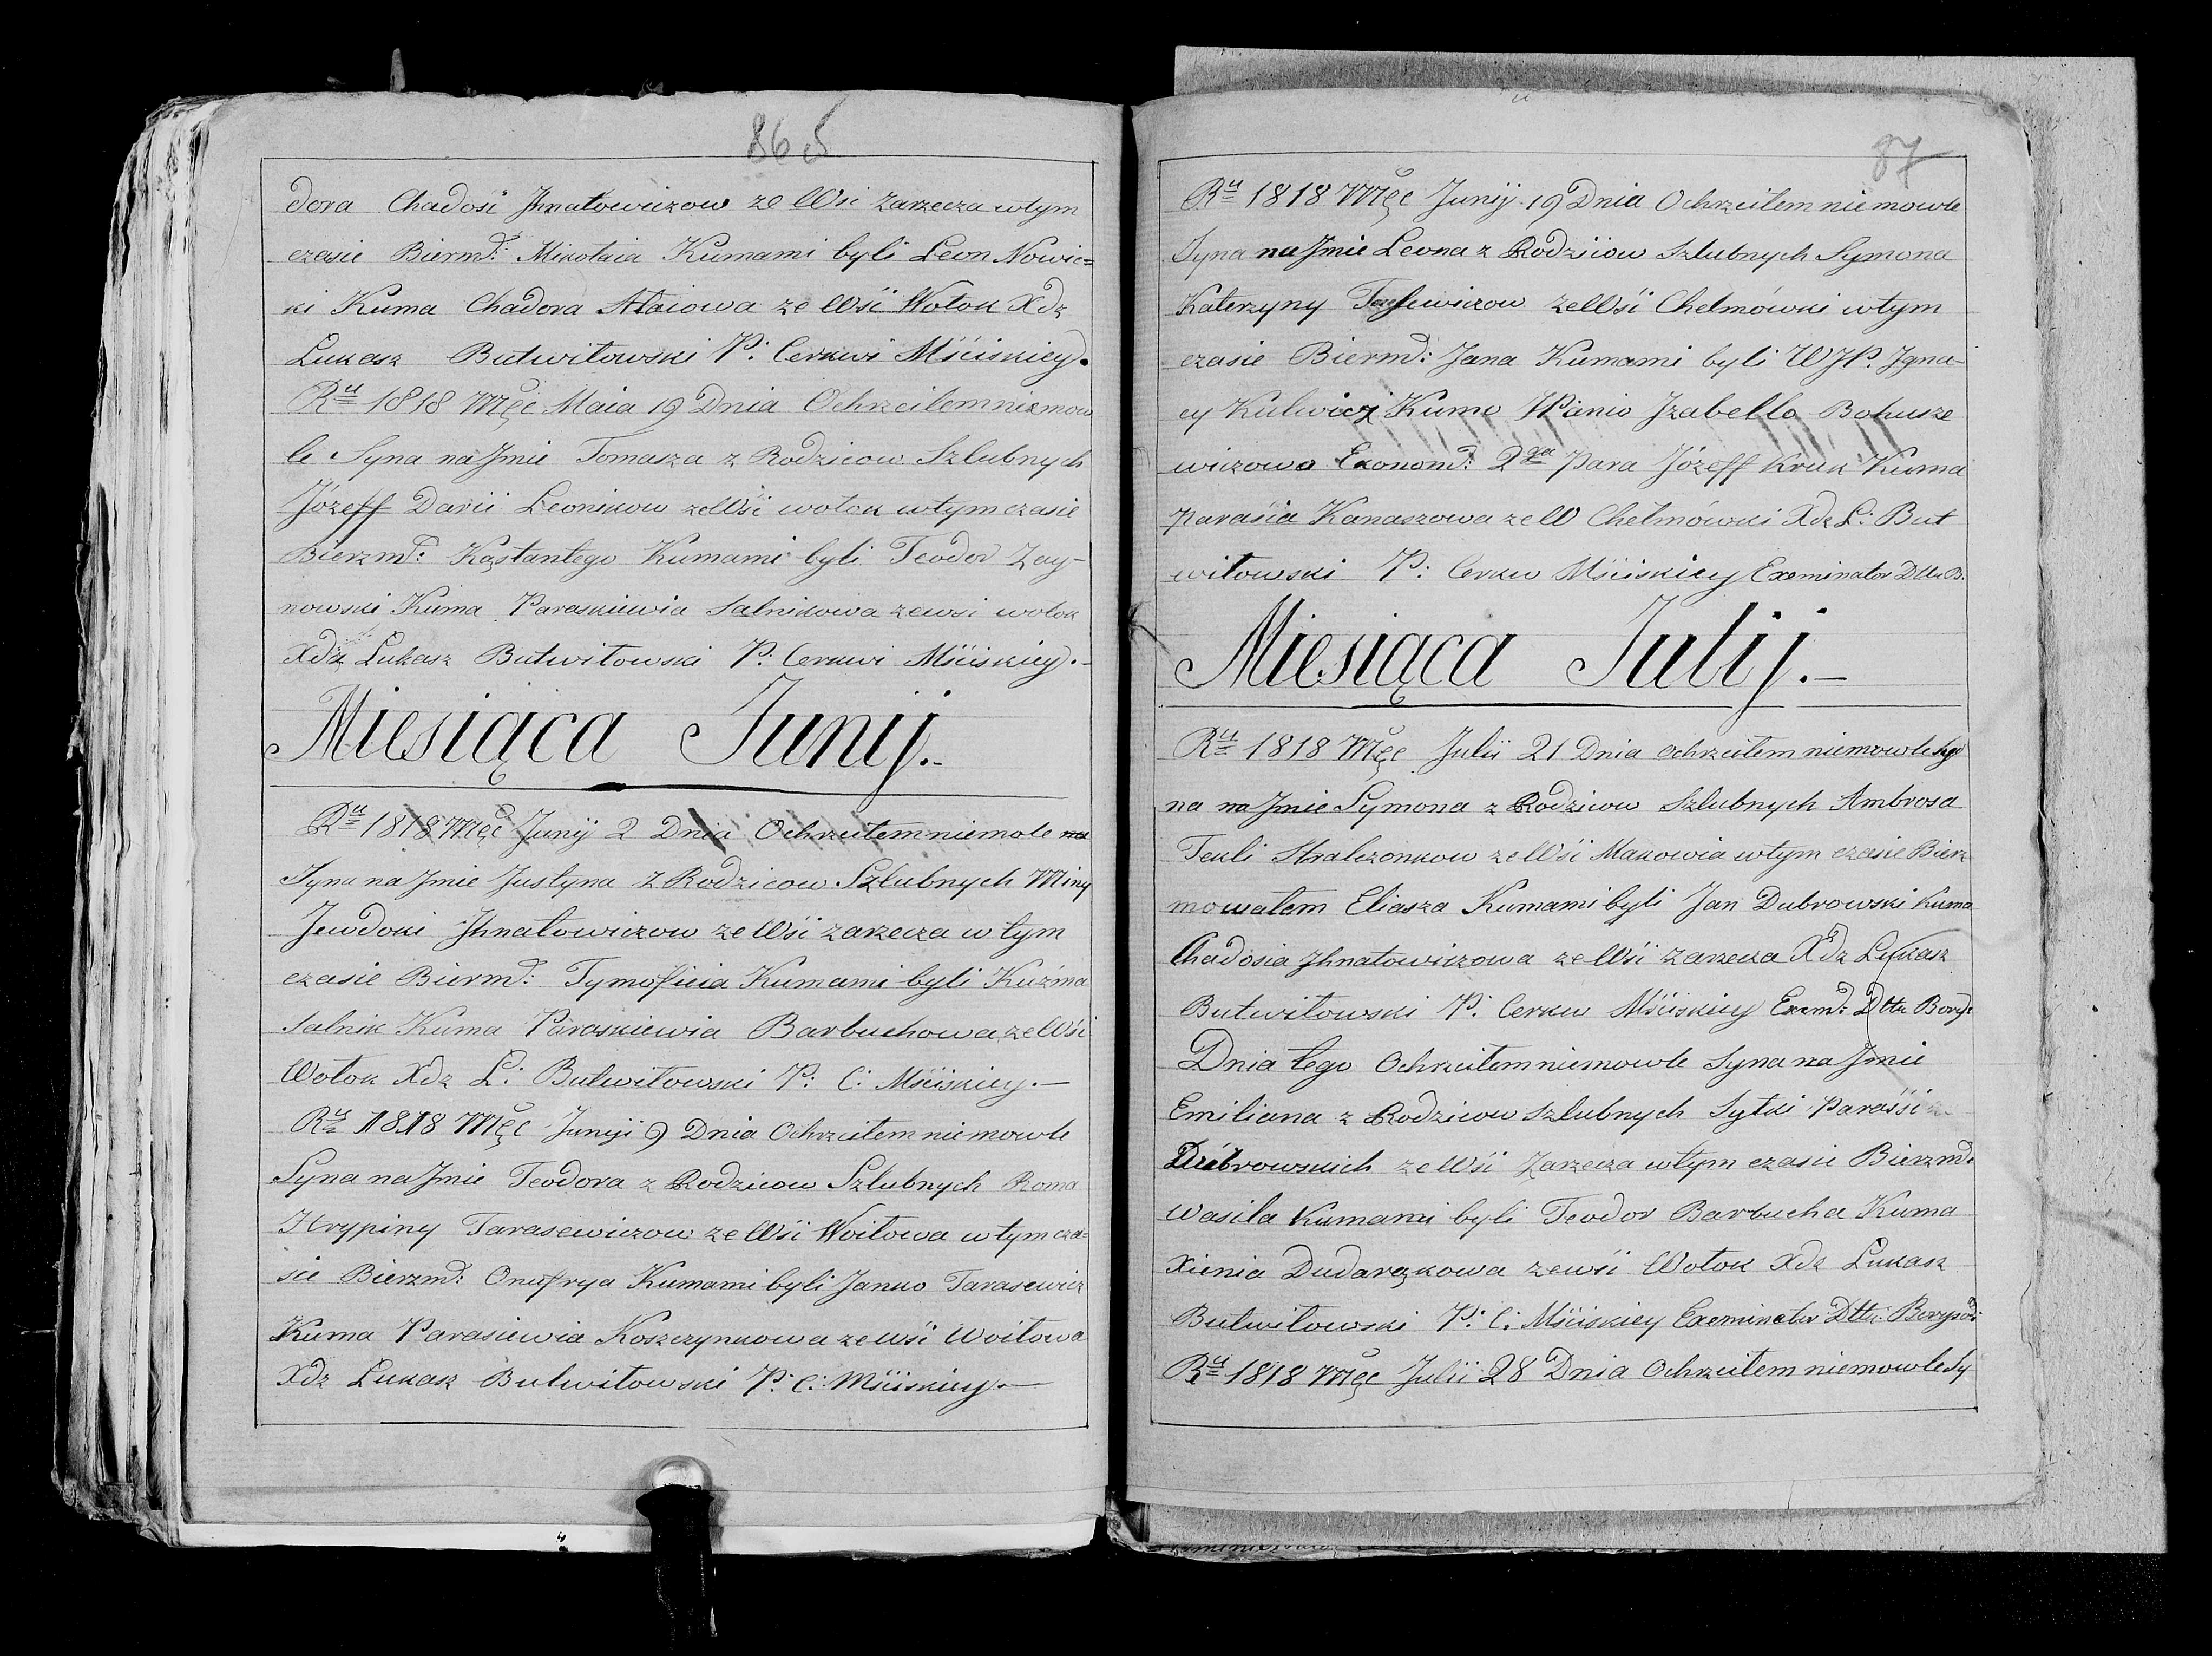 86
dora Chadosi Jhnatowiczow ze Wsi Zarzecza wtym
czasie Biermd: Mikołaia Kumami byli Leon Nowic=
ki Kuma Chadora Ataiowa ze Wśi Wołok Xdz
Łukasz Butwiłowski P: Cerkwi Mściskiey.
Ru 1818 Męc Maia 19 Dnia Ochrzciłem niemow
le Syna na Jmie Tomasza z Rodzicow Szlubnych
Józeff Darii Leonikow ze Wśi wołok wtym czasie
Bierzmd: Kąstantego Kumami byli Teodor Zay-
nowski Kuma Paraskiewia Salnikowa zewsi wołok
Xdz Łukasz Butwiłowski P: Cerkwi Mściskiey.-
Miesiąca Junij.-
Ru 1818 Męc Junij 2 Dnia Ochrzciłem niemole na
Syna na Jmie Justyna z Rodzicow Szlubnych Miny
Jewdoki Jhnatowiczow ze Wśi zarzecza w tym
czasie Biermd: Tymofieia Kumami byli Kuźma
Salnik Kuma Paraskiewia Barbuchowa ze Wśi
Wołok Xdz Ł: Butwiłowski P: C: Mściskiey.-
Ru 1818 Męc Junii 9 Dnia Ochrzciłem niemowle
Syna na Jmie Teodora z Rodzicow Szlubnych Roma
Hrypiny Tarasewiczow ze Wśi Woitowa w tym cza=
sie Bierzmd: Onufrya Kumami byli Janko Tarasewicz
Kuma Parasiewia Koszczynkowa ze wśi Woitowa
Xdz Łukasz Butwiłowski P: C: Mściskiey.-
87
Ru 1818 Męc Junij 19 Dnia Ochrzciłem niemowle
Syna na Jmie Leona z Rodziiow Szlubnych Symona
Katerzyny ze Wśi Chełmówki wtym
czasie Biermd: Jana Kumami byli WJP. Jgna-
cy Kulwicz Kumo JPanio Jzabello Bohusze
wiczowo Exonomd: 2ga Para Józeff Kruk Kuma
Paraśia Kanaszowa ze W Chełmówki Xdz Ł: But
wiłowski P: Cerkw Mściskiey Exeminator Dttu B.
Miesiąca Julij.-
Ru 1818 Męc Julii 21 Dnia ochrzciłem niemowle Sy
na na Jmie Symona z Rodzicow Szlubnych Ambrosa
Tekli Stralczonkow ze Wśi Makowia wtym czasie Bierz
mowałem Eliasza Kumami byli Jan Dubrowski Kuma
Chadosia Jhnatowiczowa ze Wśi zarzecza Xdz Łukasz
Butwiłowski P: Cerkw Mściskiey Exemd: Dttu Bory:
Dnia tego Ochrzciłem niemowle Syna na Jmie
Emiliana z Rodzicow szlubnych Sytki Paraśśi
Dubrowskich ze Wśi Zarzecza wtym czasie Bierzmd:
Wasila Kumami byli Teodor Barbucha Kuma
Xienia Dudarąkowa zewśi Wołok Xdz Łukasz
Butwiłowski P: C: Mściskiey Exeminator Dttu: Borysod:
Ru 1818 Męc Julii 28 Dnia Ochrzciłem niemowle Sy